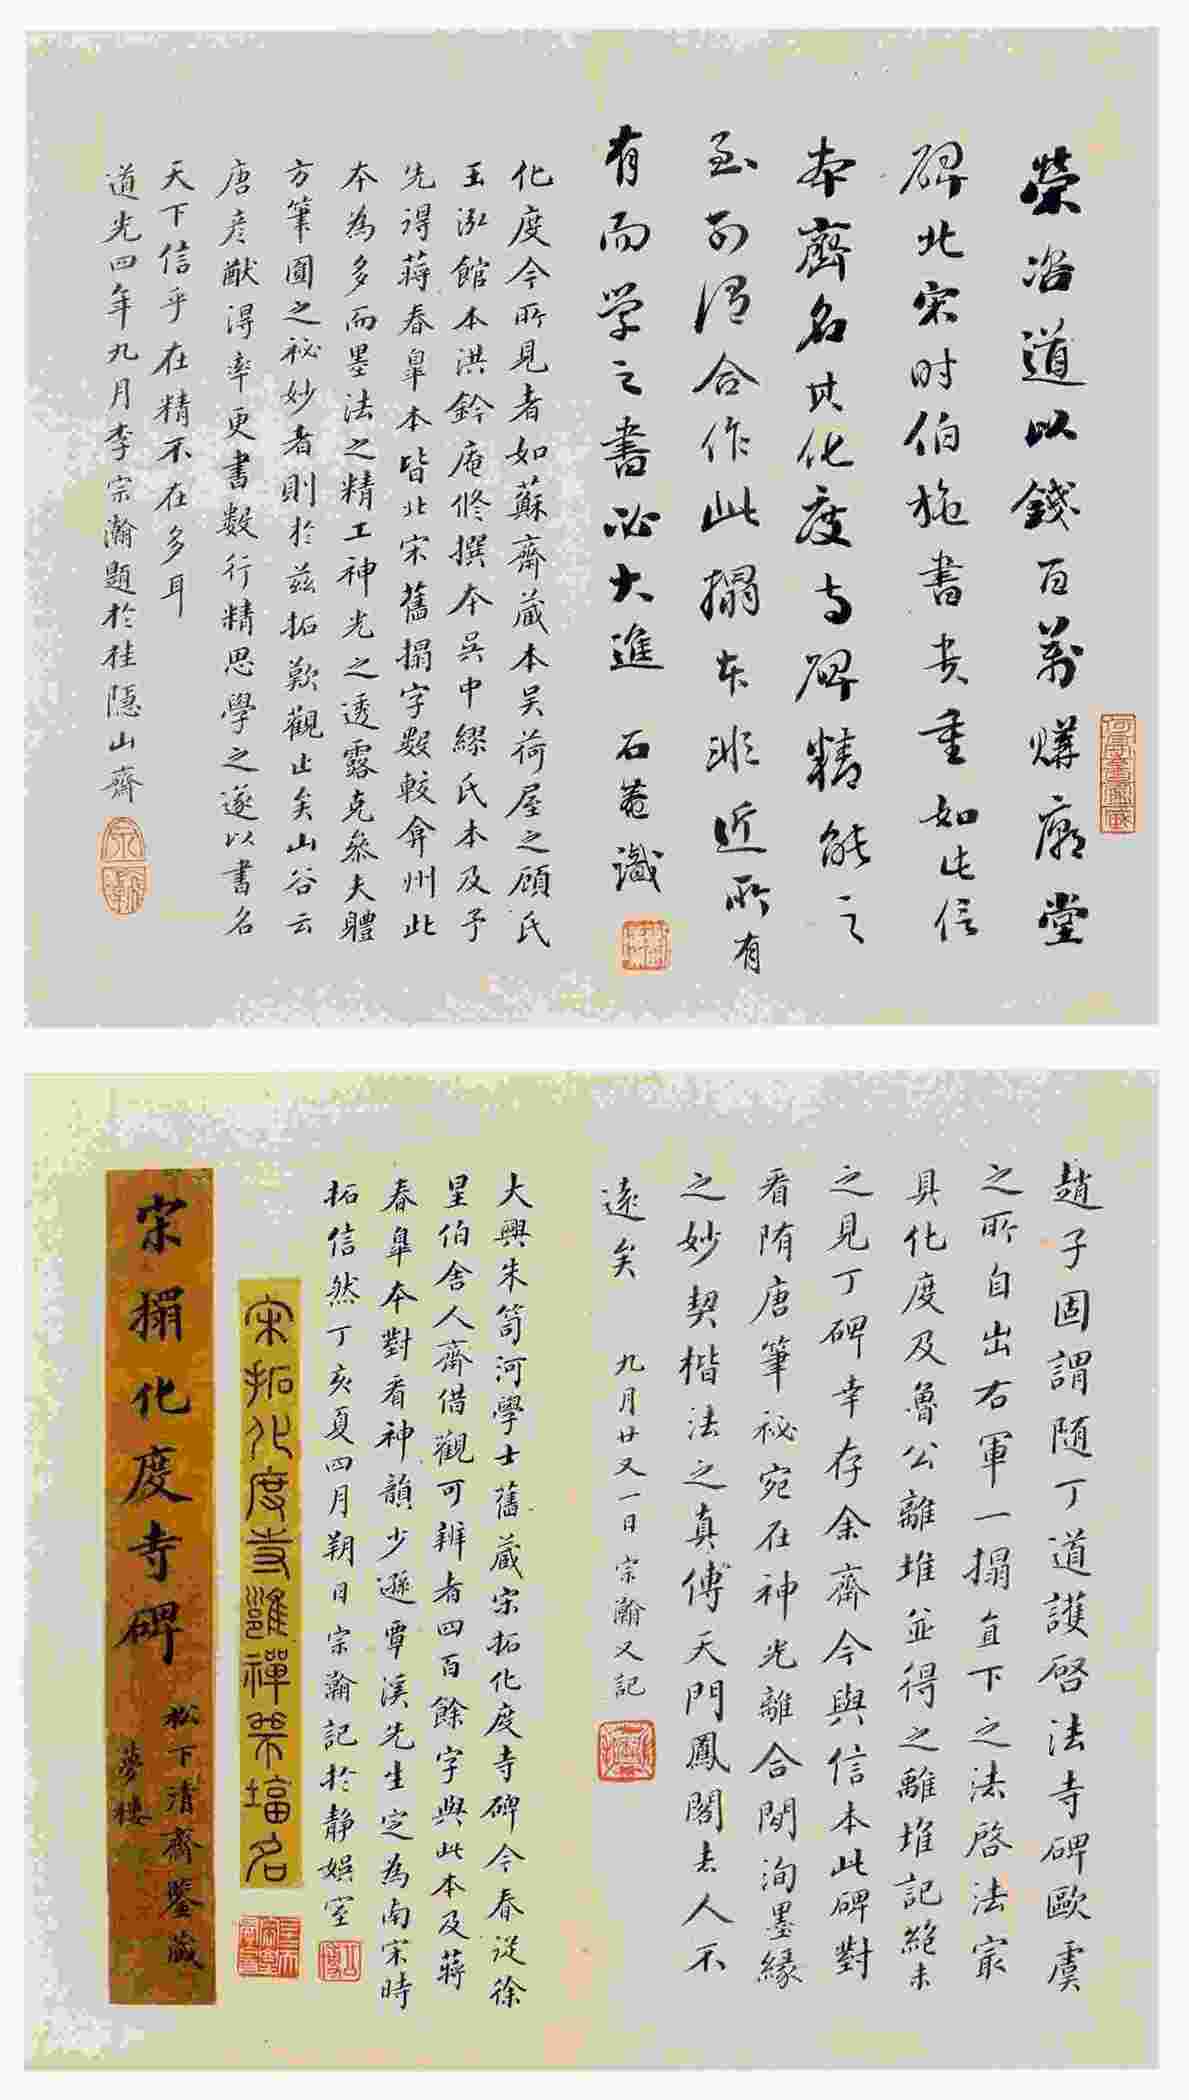 榮咨道以錢百萬購廟堂
碑北宋时伯施書貴重如此信
本齊名其化度寺碑精能之
至前得合作此搨本非近所有
有而学之書必大進 石菴識
化度今所見者如蘇齋藏本吴荷屋之顧氏
玉泓館本洪鈐庵修撰本吳中繆氏本及予
先得蔣春皐本皆北宋舊搨字數較弇州此
本為多而墨法之精工神光之透露克叅夫體
方筆圓之祕妙者則於茲拓歎觀止矣山谷云
唐彦猷得率更書數行精思學之遂以書名
天下信乎在精不在多耳
道光四年九月李宗瀚題於桂隱山齋
趙子固謂隨丁道護啓法寺碑歐虞
之所自出右軍一搨直下之法啓法㝡
具化度及魯公離堆並得之離堆記絕未
之見丁碑幸存余齋今與信本此碑對
看隋唐筆祕宛在神光離合間洵墨緣
之妙契楷法之真傳天門鳳閣去人不
遠矣 九月廿又一日宗瀚又記
大興朱笥河學士舊藏宋拓化度寺碑今春從徐
星伯舍人齋借觀可辨者四百餘字與此本及蔣
春皐本對看神韻少遜覃溪先生定為南宋時
拓信然丁亥夏四月朔日宗瀚記於静娛室
宋拓化度寺邕禪師塔名
宋搨化度寺碑
松下清齋鑒藏
夢樓